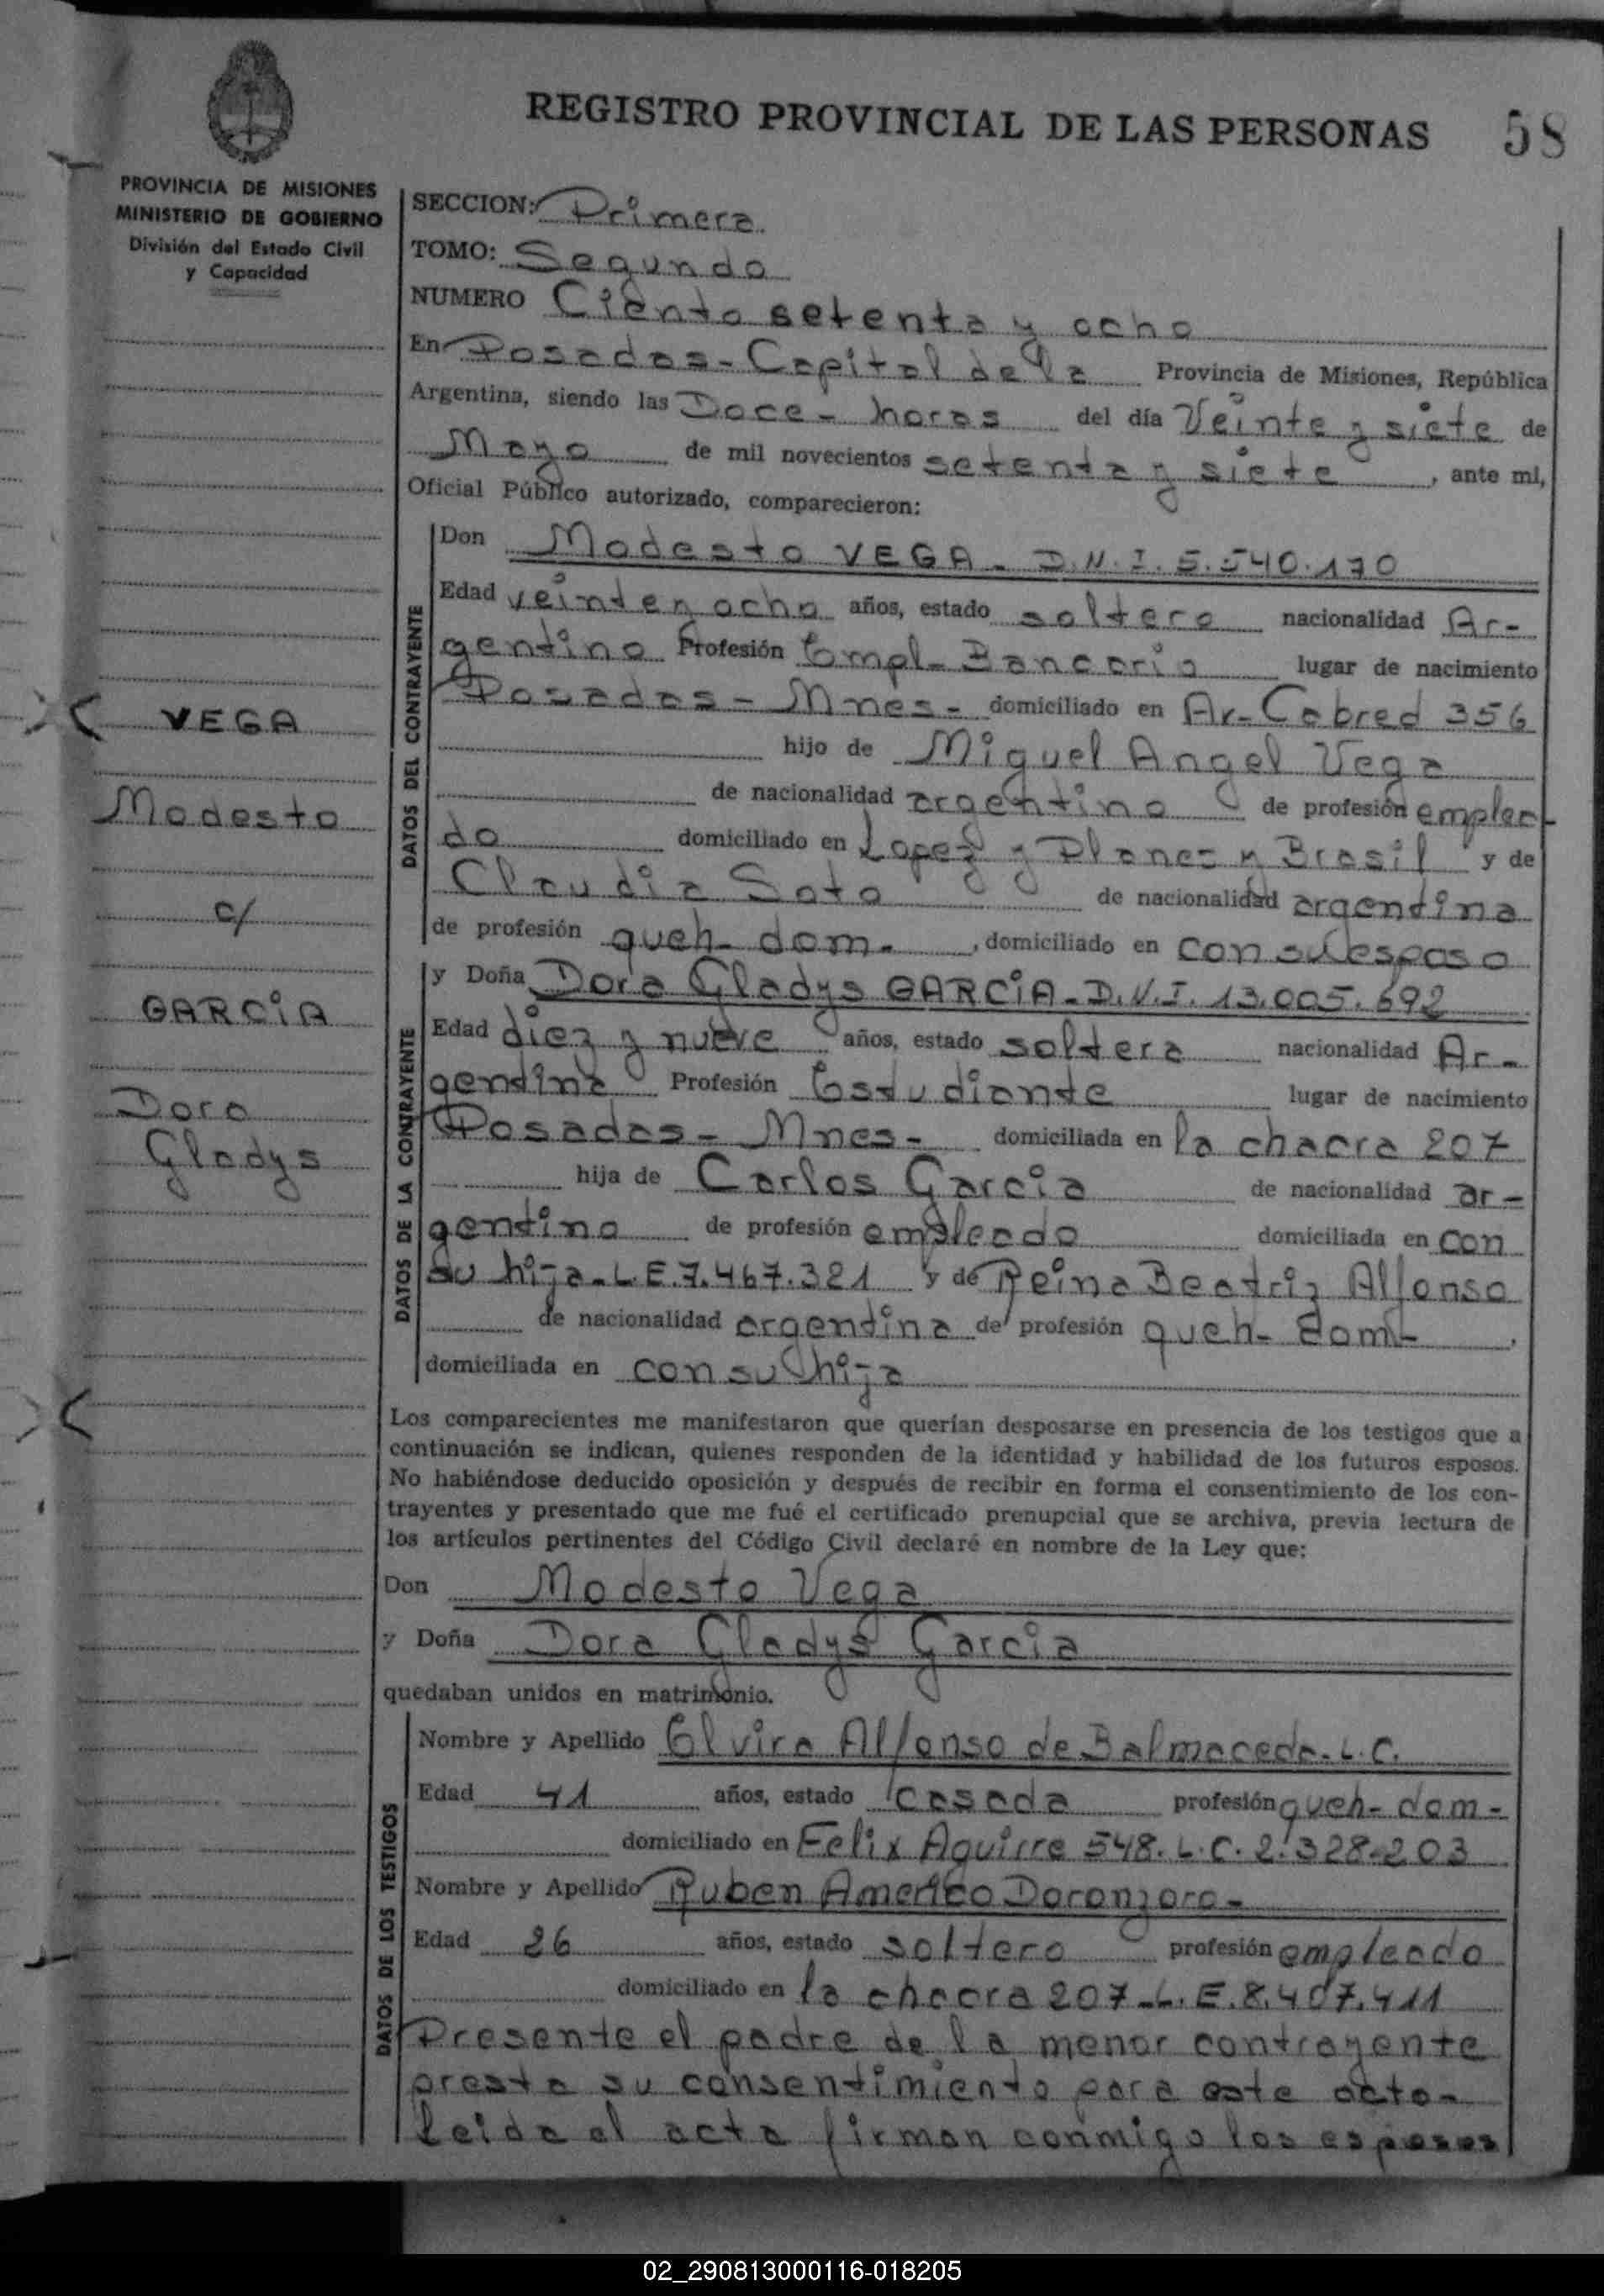 REGISTRO PROVINCIAL DE LAS PERSONAS 58
PROVINCIA DE MISIONES
MINISTERIO DE GOBIERNO
División del Estado Civil
y Capacidad
VEGA
Modesto
c/
GARCÍA
Dora
Gladys
SECCION: Primera
TOMO: Segundo
NUMERO Ciento setenta y ocho
En Posadas - Capital de la Provincia de Misiones, República
Argentina, siendo las Doce - horas del día Veinte y siete de
Mayo de mil novecientos setenta y siete, ante mi,
Oficial Público autorizado, comparecieron:
DATOS DEL CONTRAYENTE
Don Modesto VEGA - D.N.I. 5.540.170
Edad veinte y ocho años, estado soltero nacionalidad Ar-
gentino Profesión Empl - Bancario lugar de nacimiento
Posadas - Mnes - domiciliado en Av - Cabred 356
hijo de Miguel Angel Vega
de nacionalidad argentino de profesión emplea-
do domiciliado en Lopez y Planes y Brasil y de
Claudia Soto de nacionalidad argentina
de profesión queh - dom -, domiciliado en con su esposo
DATOS DE LA CONTRAYENTE
y Doña Dora Gladys GARCÍA - D.N.I. 13.005.692
Edad diez y nueve años, estado soltera nacionalidad Ar-
gentina Profesión Estudiante lugar de nacimiento
Posadas - Mnes - domiciliada en la chacra 207
hija de Carlos Garcia de nacionalidad ar-
gentino de profesión empleado domiciliada en con
su hija - L.E. 7.467.321 y de Reina Beatriz Alfonso
de nacionalidad argentina de profesión queh - dom -,
domiciliada en con su hija
Los comparecientes me manifestaron que querían desposarse en presencia de los testigos que a
continuación se indican, quienes responden de la identidad y habilidad de los futuros esposos.
No habiéndose deducido oposición y después de recibir en forma el consentimiento de los con-
trayentes y presentado que me fué el certificado prenupcial que se archiva, previa lectura de
los artículos pertinentes del Código Civil declaré en nombre de la Ley que:
Don Modesto Vega
y Doña Dora Gladys Garcia
quedaban unidos en matrimonio.
DATOS DE LOS TESTIGOS
Nombre y Apellido Elvira Alfonso de Balmaceda - L.C.
Edad 41 años, estado casada profesión queh - dom -
domiciliado en Felix Aguirre 548. L.C. 2.328.203
Nombre y Apellido Ruben Americo Doronzoro -
Edad 26 años, estado soltero profesión empleado
domiciliado en la chacra 207 - L.E. 8.407.411
Presente el padre de la menor contrayente
presta su consentimiento para este acto -
Leida el acta firman conmigo los esposos
02_290813000116-018205